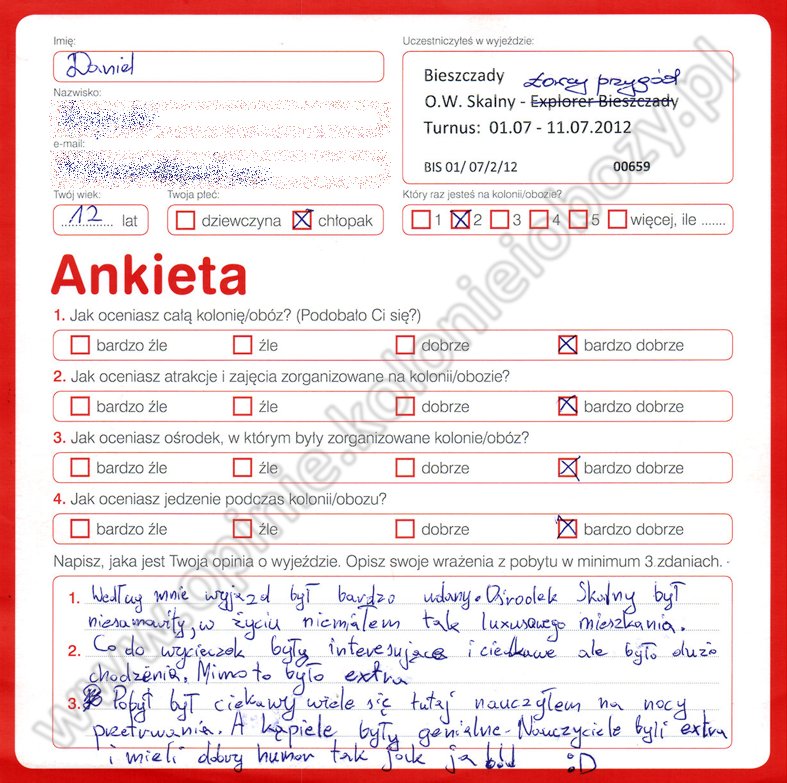 Imię:
Daniel
Nazwisko:
e-mail:
Twój wiek:
12 lat
Twoja płeć:
dziewczyna chłopak
Uczestniczyłeś w wyjeździe:
Bieszczady Łowcy przygód
O.W. Skalny - Explorer Bieszczady
Turnus: 01.07 - 11.07.2012
BIS 01/ 07/2/12 00659
Który raz jesteś na kolonii/obozie?
1 2 3 4 5 więcej, ile .......
Ankieta
1. Jak oceniasz całą kolonię/obóz? (Podobało Ci się?)
bardzo źle źle dobrze bardzo dobrze
2. Jak oceniasz atrakcje i zajęcia zorganizowane na kolonii/obozie?
bardzo źle źle dobrze bardzo dobrze
3. Jak oceniasz ośrodek, w którym były zorganizowane kolonie/obóz?
bardzo źle źle dobrze bardzo dobrze
4. Jak oceniasz jedzenie podczas kolonii/obozu?
bardzo źle źle dobrze bardzo dobrze
Napisz, jaka jest Twoja opinia o wyjeździe. Opisz swoje wrażenia z pobytu w minimum 3 zdaniach.
1. Według mnie wyjazd był bardzo udany. Ośrodek Skalny był
niesamowity, w życiu niemiałem tak luxusowego mieszkania.
2. Co do wycieczek były interesujące i ciekawe ale było dużo
chodzenia. Mimo to było extra
3. Pobyt był ciekawy wiele się tutaj nauczyłem na nocy
przetrwania. A kąpiele były genialne. Nauczyciele byli extra
i mieli dobry humor tak jak ja :D
www.opinie.kolonieiobozy.pl